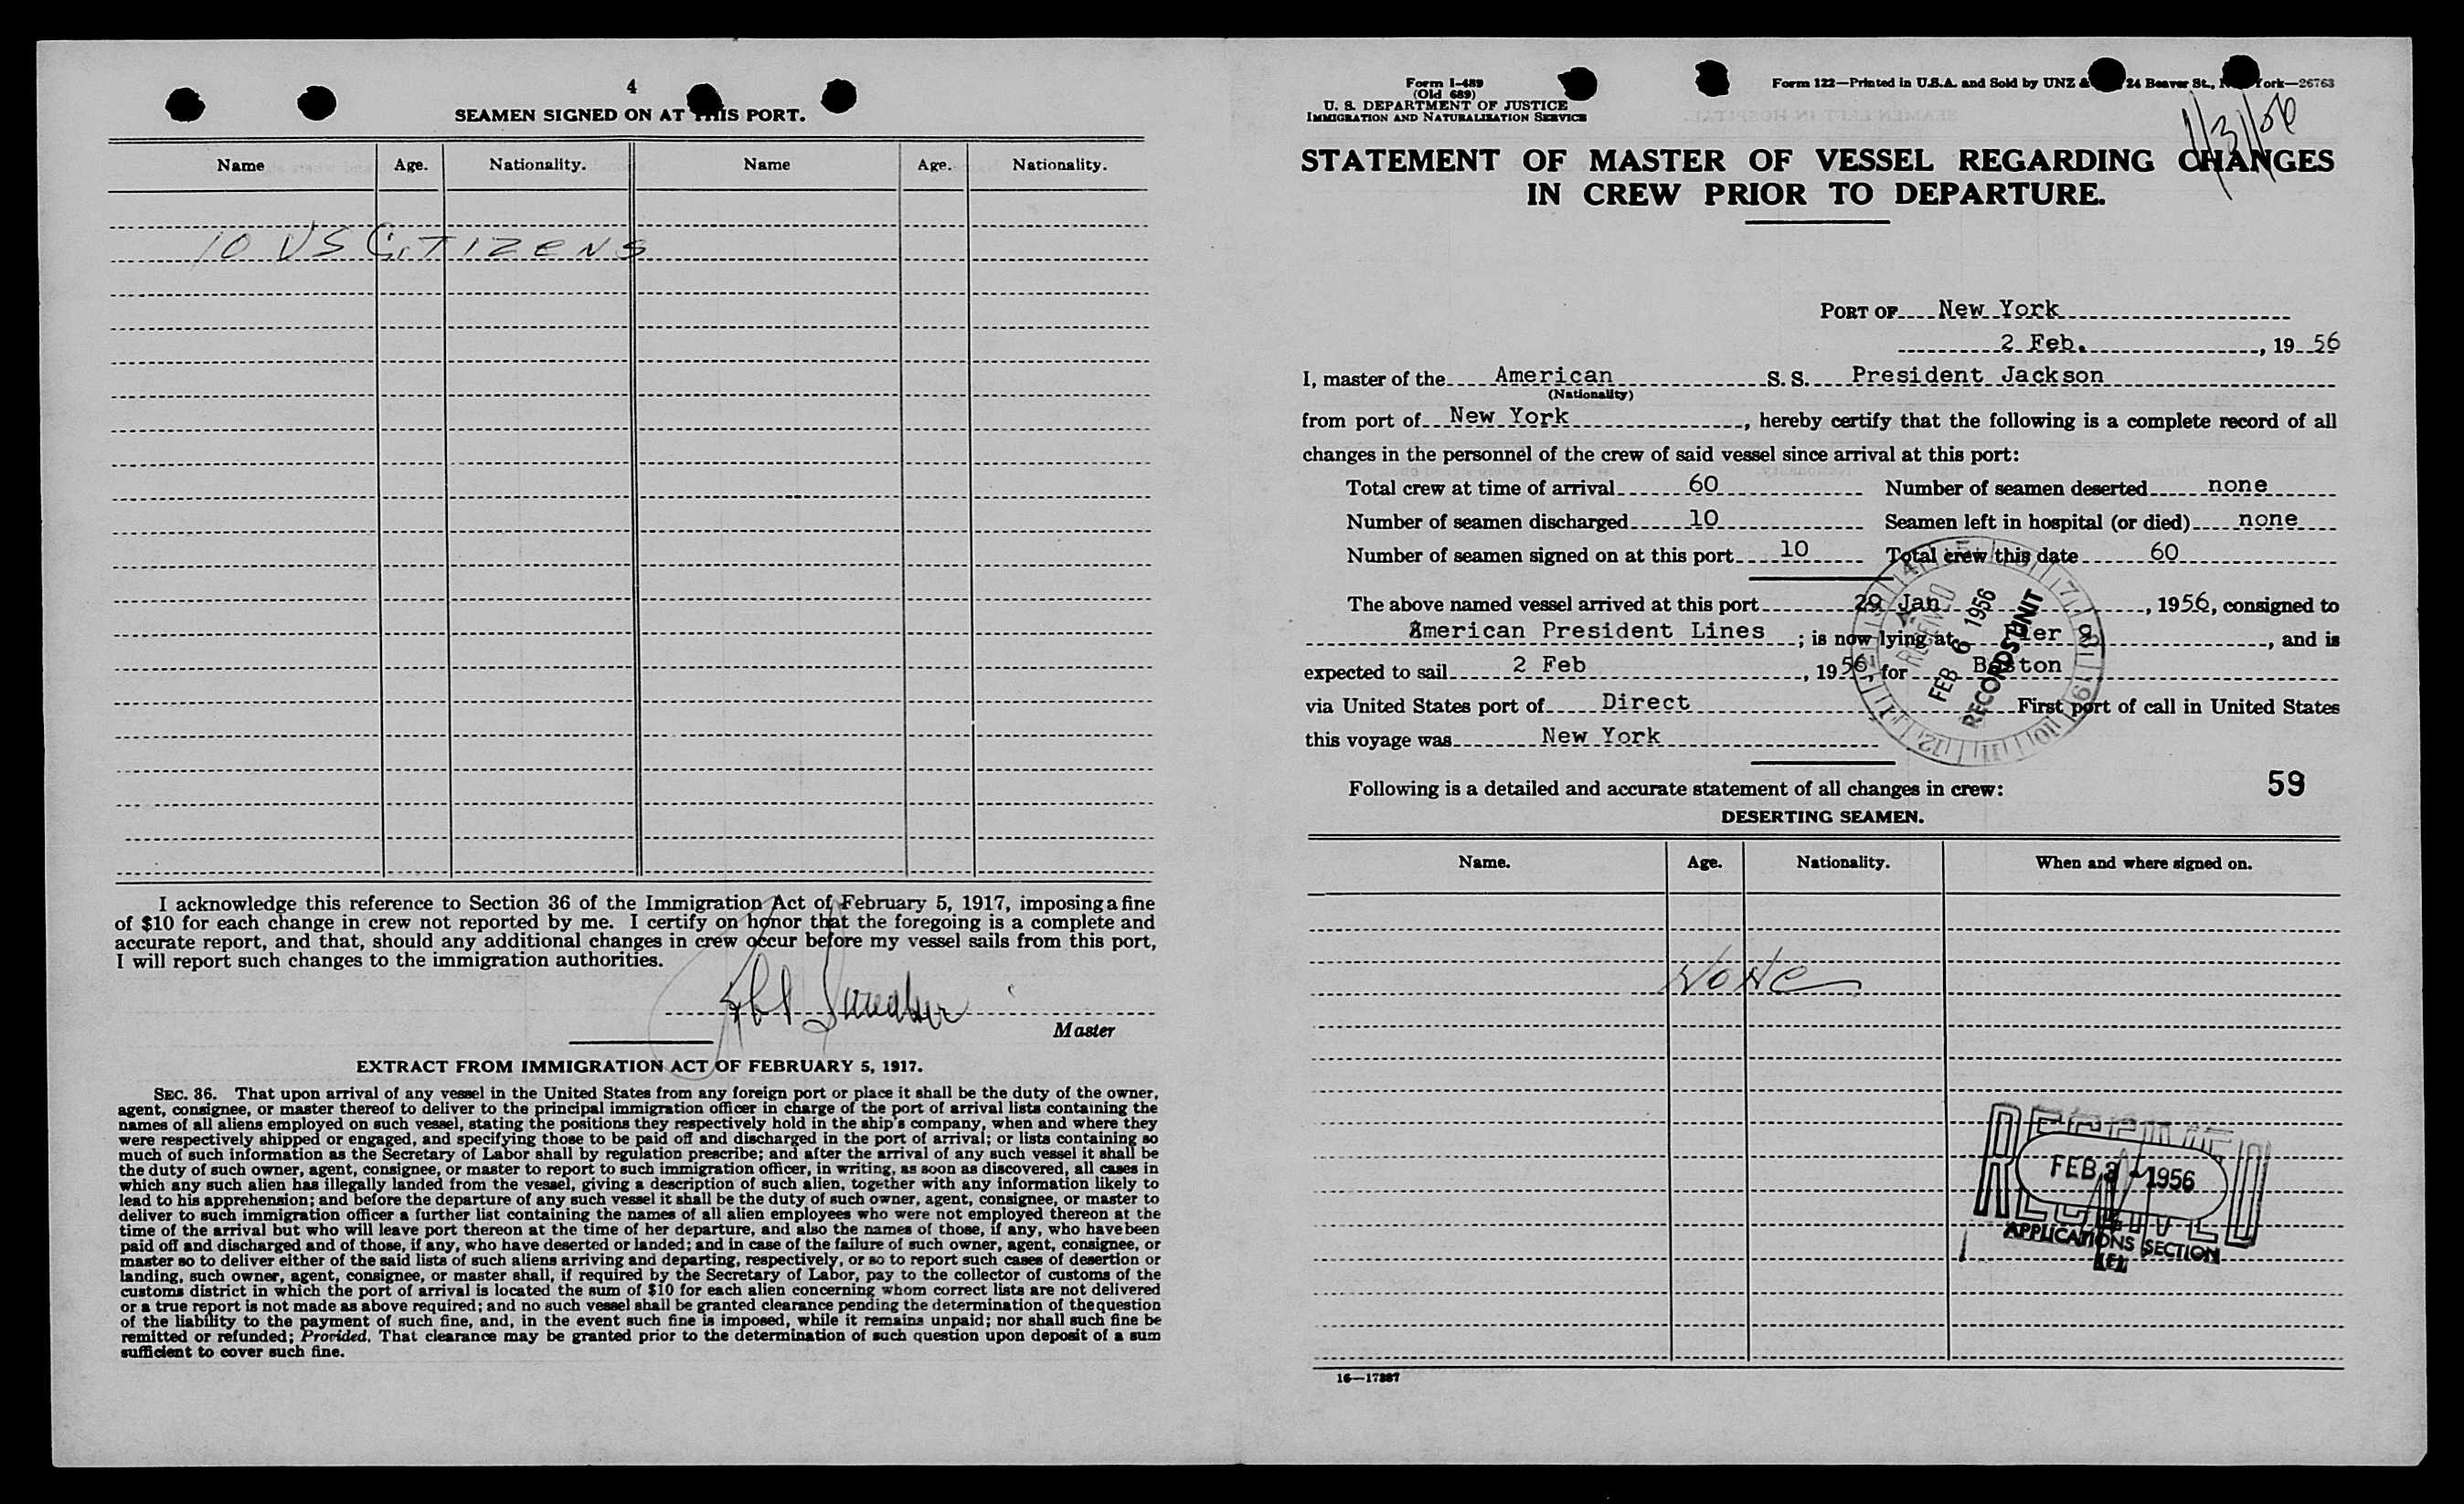 4
SEAMEN SIGNED ON AT THIS PORT.
Name Age. Nationality. Name Age. Nationality.
10 US CiTIZENS
I acknowledge this reference to Section 36 of the Immigration Act of February 5, 1917, imposing a fine
of $10 for each change in crew not reported by me. I certify on honor that the foregoing is a complete and
accurate report, and that, should any additional changes in crew occur before my vessel sails from this port,
I will report such changes to the immigration authorities.
Master
EXTRACT FROM IMMIGRATION ACT OF FEBRUARY 5, 1917.
SEC. 36. That upon arrival of any vessel in the United States from any foreign port or place it shall be the duty of the owner,
agent, consignee, or master thereof to deliver to the principal immigration officer in charge of the port of arrival lists containing the
names of all aliens employed on such vessel, stating the positions they respectively hold in the ship's company, when and where they
were respectively shipped or engaged, and specifying those to be paid off and discharged in the port of arrival; or lists containing so
much of such information as the Secretary of Labor shall by regulation prescribe; and after the arrival of any such vessel it shall be
the duty of such owner, agent, consignee, or master to report to such immigration officer, in writing, as soon as discovered, all cases in
which any such alien has illegally landed from the vessel, giving a description of such alien, together with any information likely to
lead to his apprehension; and before the departure of any such vessel it shall be the duty of such owner, agent, consignee, or master to
deliver to such immigration officer a further list containing the names of all alien employees who were not employed thereon at the
time of the arrival but who will leave port thereon at the time of her departure, and also the names of those, if any, who have been
paid off and discharged and of those, if any, who have deserted or landed; and in case of the failure of such owner, agent, consignee, or
master so to deliver either of the said lists of such aliens arriving and departing, respectively, or so to report such cases of desertion or
landing, such owner, agent, consignee, or master shall, if required by the Secretary of Labor, pay to the collector of customs of the
customs district in which the port of arrival is located the sum of $10 for each alien concerning whom correct lists are not delivered
or a true report is not made as above required; and no such vessel shall be granted clearance pending the determination of the question
of the liability to the payment of such fine, and, in the event such fine is imposed, while it remains unpaid; nor shall such fine be
remitted or refunded; Provided, That clearance may be granted prior to the determination of such question upon deposit of a sum
sufficient to cover such fine.
Form I-489
(Old 689)
U. S. DEPARTMENT OF JUSTICE
IMMIGRATION AND NATURALIZATION SERVICE
Form 122—Printed in U.S.A. and Sold by UNZ & 24 Beaver St., York—26763
STATEMENT OF MASTER OF VESSEL REGARDING CHANGES
IN CREW PRIOR TO DEPARTURE.
PORT OF New York
2 Feb. , 19 56
I, master of the American S. S. President Jackson
(Nationality)
from port of New York , hereby certify that the following is a complete record of all
changes in the personnel of the crew of said vessel since arrival at this port:
Total crew at time of arrival 60 Number of seamen deserted none
Number of seamen discharged 10 Seamen left in hospital (or died) none
Number of seamen signed on at this port 10 Total crew this date 60
The above named vessel arrived at this port 29 Jan , 1956, consigned to
American President Lines ; is now lying at Pier 9 , and is
expected to sail 2 Feb , 1956 for Boston
via United States port of Direct First port of call in United States
this voyage was New York
RECEIVED
FEB 6 1956
RECORDS UNIT
Following is a detailed and accurate statement of all changes in crew: 59
DESERTING SEAMEN.
Name. Age. Nationality. When and where signed on.
NONe
FEB 3 - 1956
RECEIVED
APPLICATIONS SECTION
16—17887